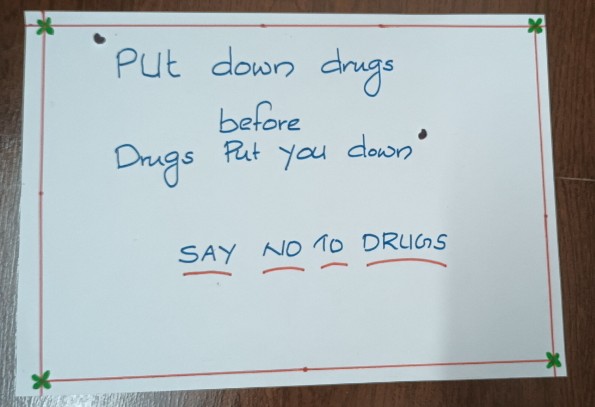 Put down drugs
before
Drugs Put you down
SAY NO TO DRUGS